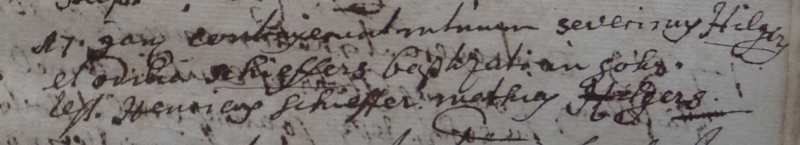 17. jan contraxerunt mtrimon severinus Hilgers
et odilia schieffers baptizati in
test. Henricus Schieffer mathias Hilgers